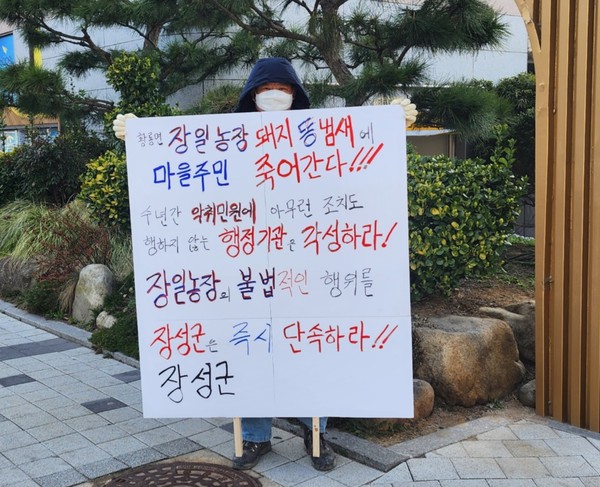 황룡면 장일농장 돼지 똥 냄새에
마을주민 죽어간다!!!
수년간 악취민원에 아무런 조치도
행하지 않는 행정기관은 각성하라!
장일농장의 불법적인 행위를
장성군은 즉시 단속하라!!
장성군